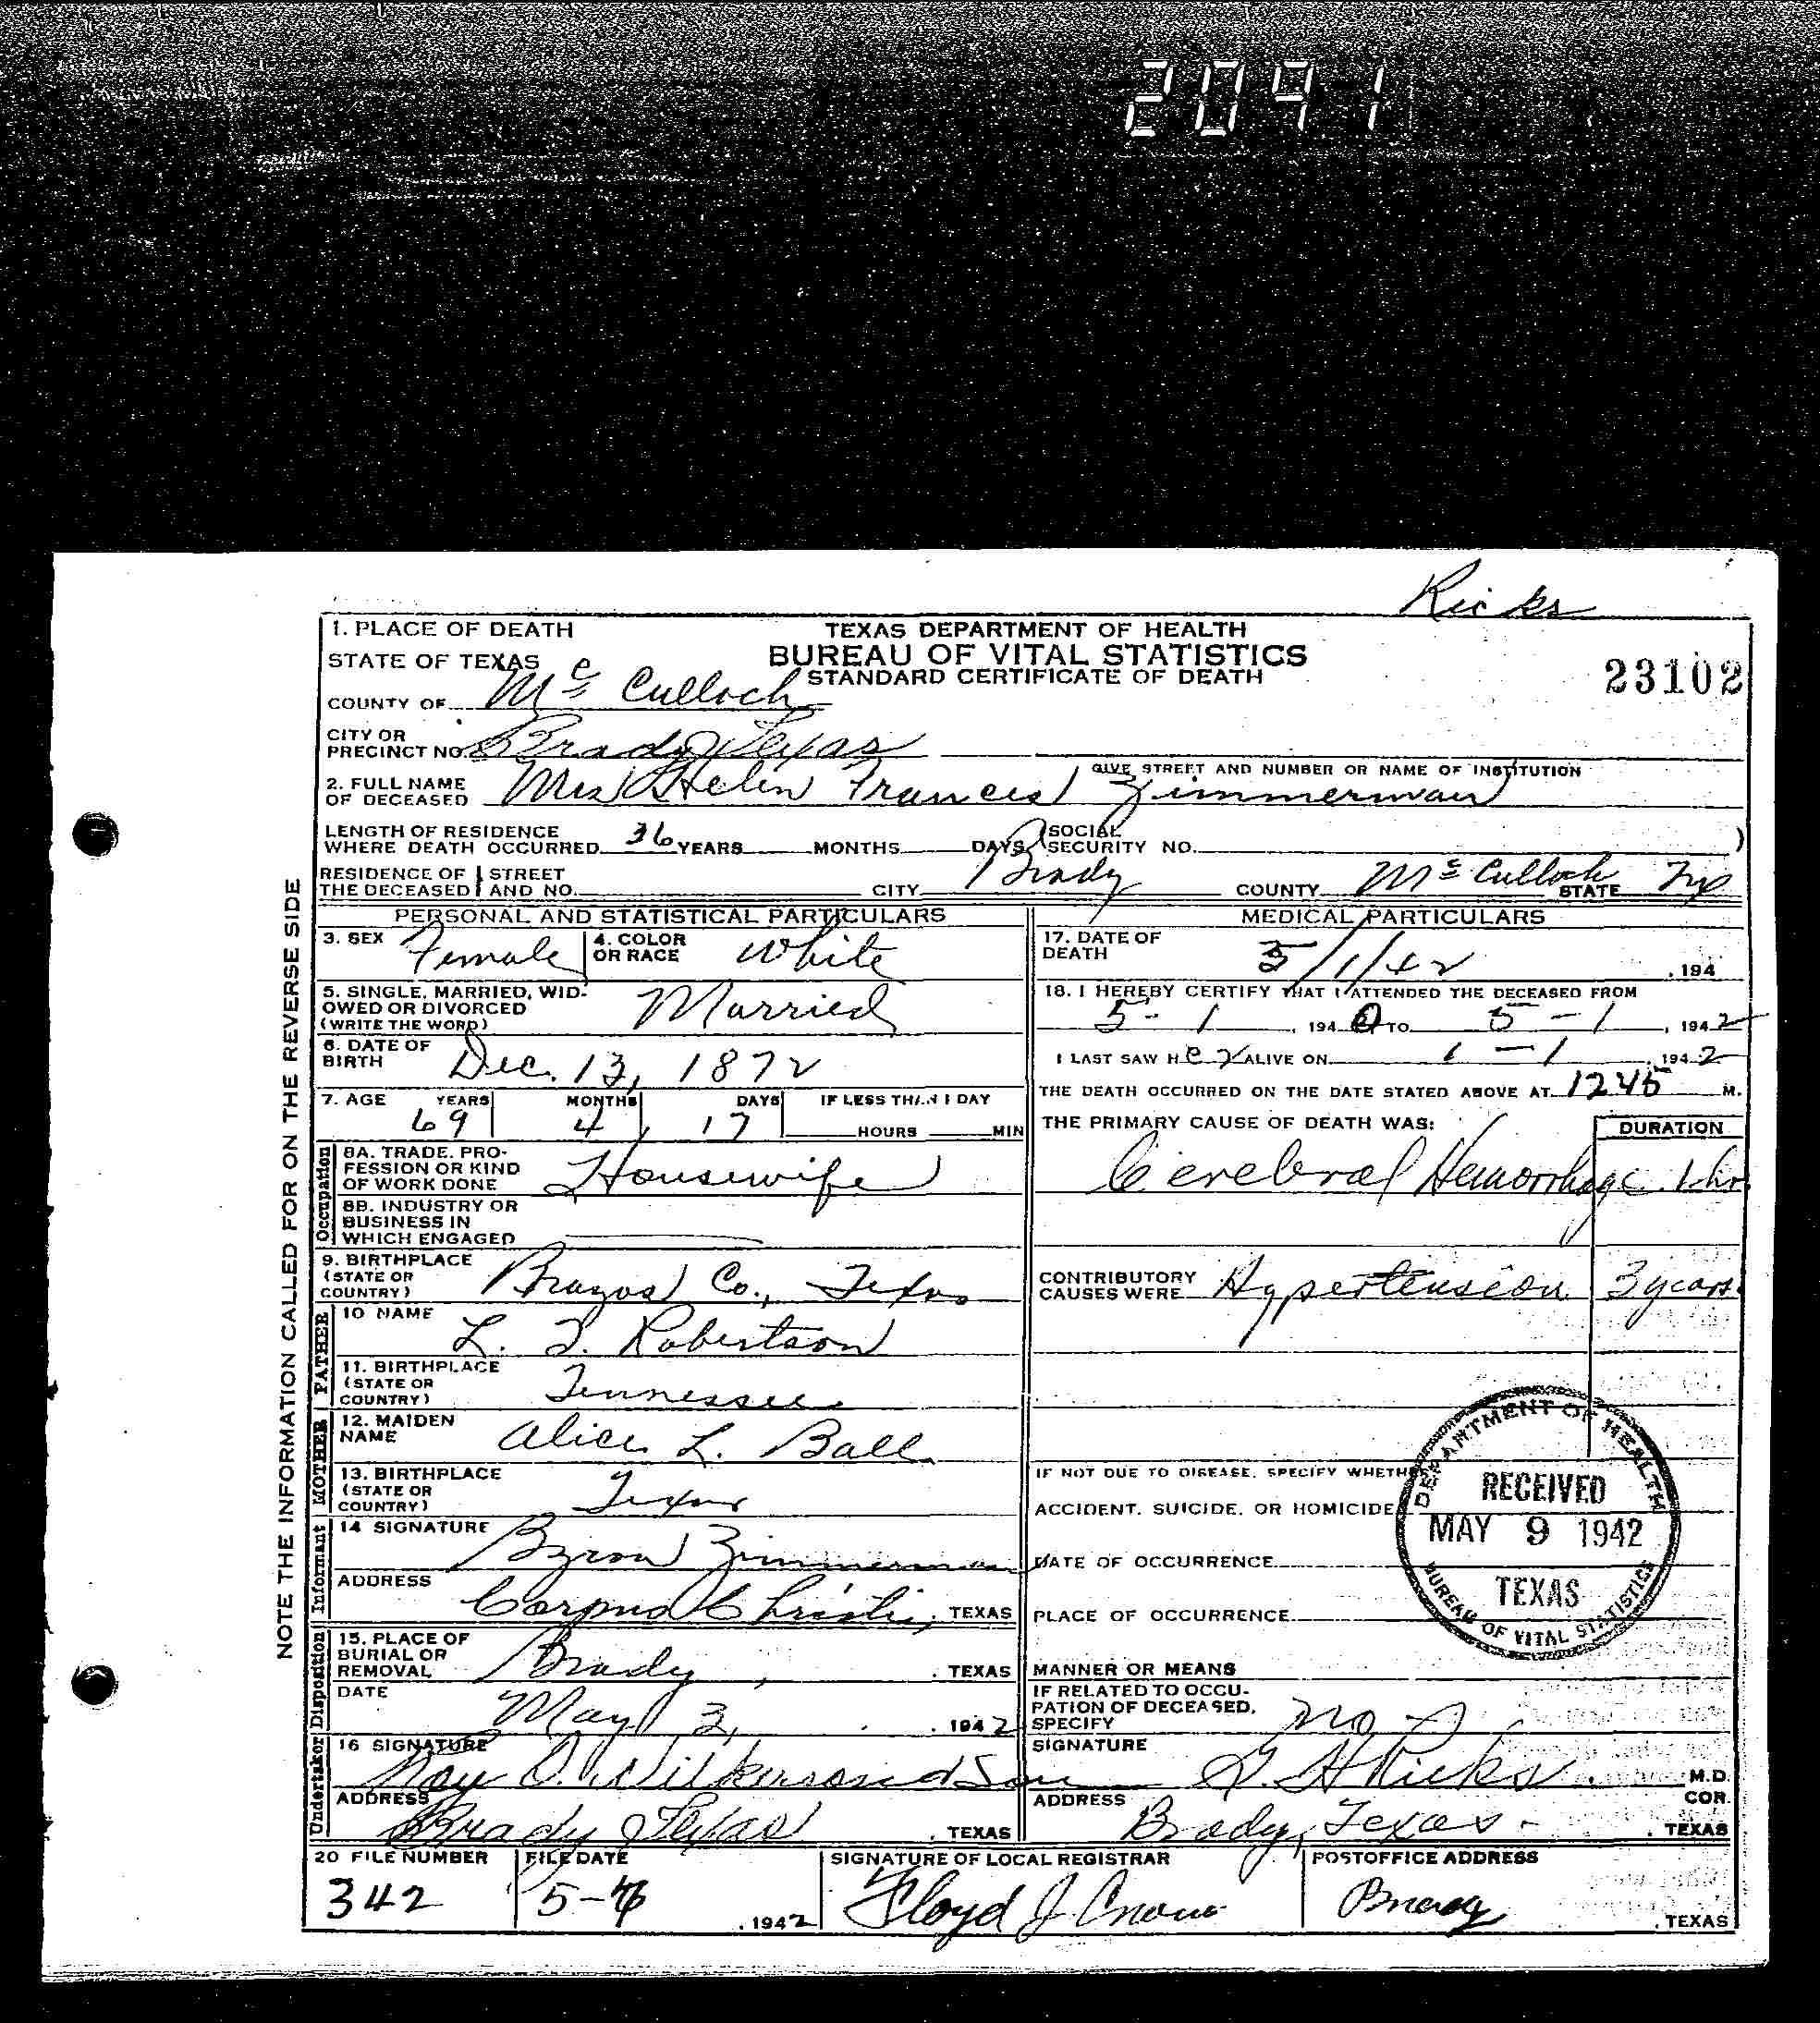 2091
Ricks
1. PLACE OF DEATH
STATE OF TEXAS
COUNTY OF McCulloch
TEXAS DEPARTMENT OF HEALTH
BUREAU OF VITAL STATISTICS
STANDARD CERTIFICATE OF DEATH
23102
CITY OR PRECINCT NO. Brady Texas
GIVE STREET AND NUMBER OR NAME OF INSTITUTION
2. FULL NAME OF DECEASED Mrs Helen Frances Zimmerman
LENGTH OF RESIDENCE WHERE DEATH OCCURRED 36 YEARS MONTHS DAYS (SOCIAL SECURITY NO. )
RESIDENCE OF THE DECEASED STREET AND NO. CITY Brady COUNTY McCulloch STATE Tex
NOTE THE INFORMATION CALLED FOR ON THE REVERSE SIDE
PERSONAL AND STATISTICAL PARTICULARS
3. SEX Female 4. COLOR OR RACE White
5. SINGLE, MARRIED, WIDOWED OR DIVORCED (WRITE THE WORD) Married
6. DATE OF BIRTH Dec. 13, 1872
7. AGE YEARS MONTHS DAYS IF LESS THAN 1 DAY
69 4 17 HOURS MIN
Occupation
8A. TRADE, PROFESSION OR KIND OF WORK DONE Housewife
8B. INDUSTRY OR BUSINESS IN WHICH ENGAGED
9. BIRTHPLACE (STATE OR COUNTRY) Brazos Co., Texas
FATHER
10 NAME L. T. Robertson
11. BIRTHPLACE (STATE OR COUNTRY) Tennessee
MOTHER
12. MAIDEN NAME Alice L. Ball
13. BIRTHPLACE (STATE OR COUNTRY) Texas
Informant
14 SIGNATURE Byron Zimmerman
ADDRESS Corpus Christi, TEXAS
Disposition
15. PLACE OF BURIAL OR REMOVAL Brady, TEXAS
DATE May 3, 1942
Undertaker
16 SIGNATURE Roy O. Wilkerson and Son
ADDRESS Brady Texas, TEXAS
MEDICAL PARTICULARS
17. DATE OF DEATH 5/1/42, 194
18. I HEREBY CERTIFY THAT I ATTENDED THE DECEASED FROM
5-1, 194 TO 5-1, 1942
I LAST SAW HER ALIVE ON 1-1, 1942
THE DEATH OCCURRED ON THE DATE STATED ABOVE AT 1245 M.
THE PRIMARY CAUSE OF DEATH WAS: DURATION
Cerebral Hemorrhage 1 hr
CONTRIBUTORY CAUSES WERE Hypertension 3 years
IF NOT DUE TO DISEASE, SPECIFY WHETHER
ACCIDENT, SUICIDE, OR HOMICIDE
DATE OF OCCURRENCE
PLACE OF OCCURRENCE
DEPARTMENT OF HEALTH
RECEIVED
MAY 9 1942
TEXAS
BUREAU OF VITAL STATISTICS
MANNER OR MEANS
IF RELATED TO OCCUPATION OF DECEASED, SPECIFY no
SIGNATURE Ricks M.D.
COR.
ADDRESS Brady, Texas - . TEXAS
20 FILE NUMBER 342
FILE DATE 5- , 1942
SIGNATURE OF LOCAL REGISTRAR Floyd J
POSTOFFICE ADDRESS Brady, TEXAS